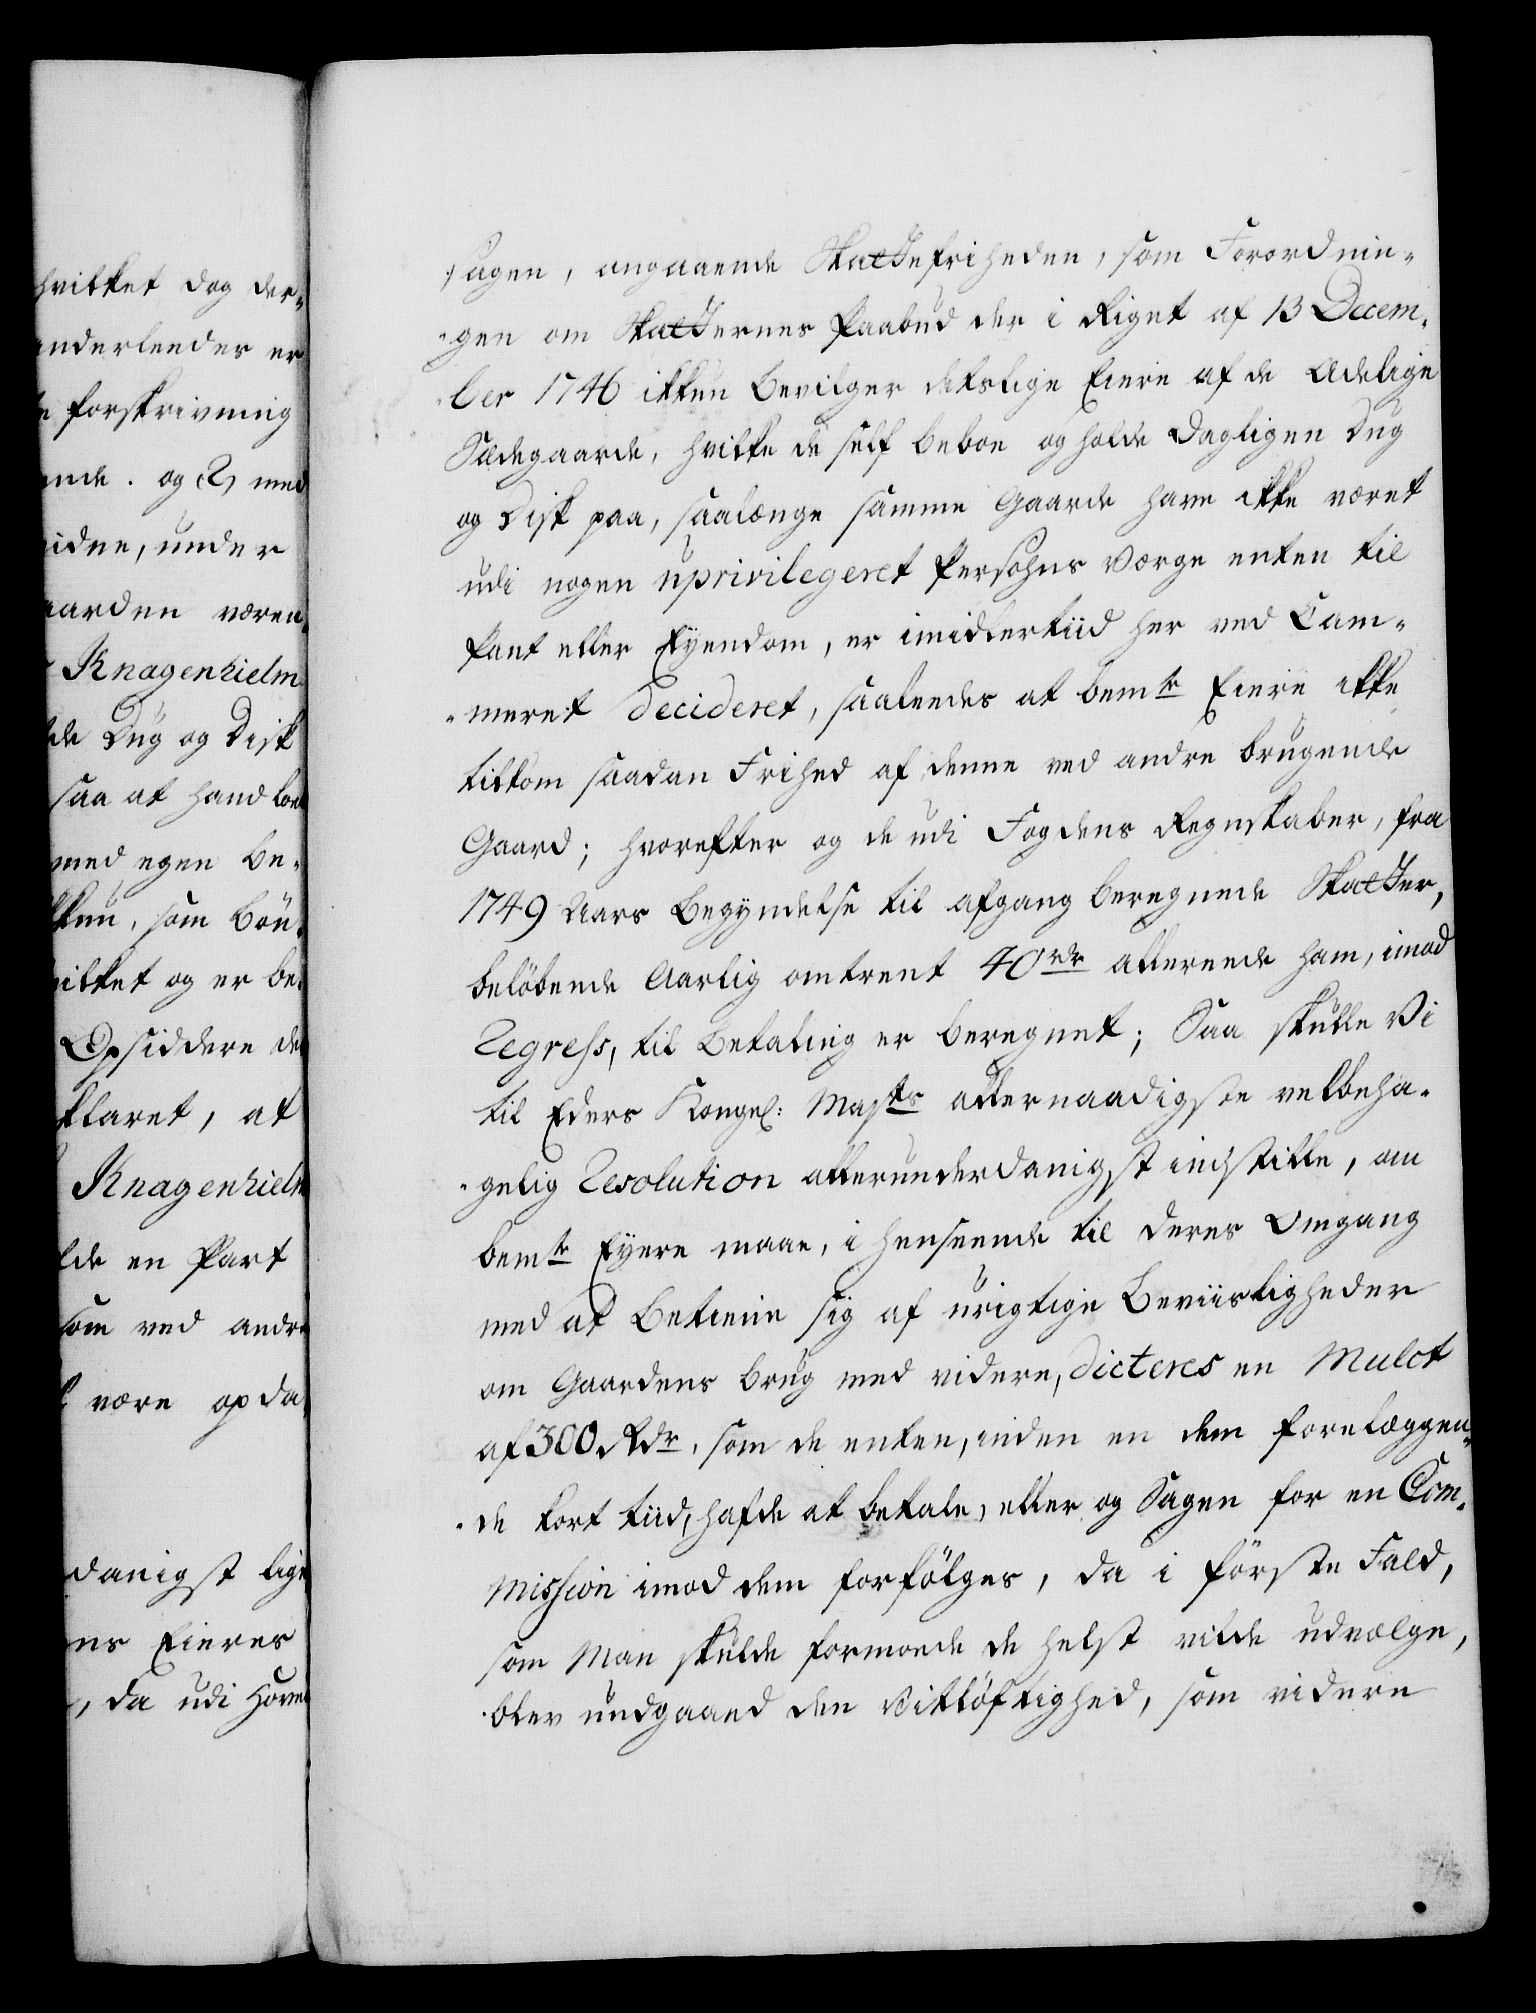 hvilket dog der-
anderleedes er
forskrivning
ende. og 2) med
under
aarden væren-
Knagenhielm
de Dug og Disk
saa at hand
med egen be-
som Bøn-
hvilket og er be-
Opsiddere de
klaret, at
Knagenhielm
en Part
som ved andre
være opda-
danigst lige
Eieres
, da udi Hove
sagen, angaaende Skattefriheden, som Forordnin-
-gen om Skatternes Paabud der i Riget af 13 Decem-
-ber 1746 ikkun bevilger detslige Eiere af de Adelige
Sædegaarde, hvilke de self beboe og holde Dagligen Dug
og Disk paa, saalænge samme Gaarde have ikke været
udi nogen uprivilegeret Persohns Værge enten til
Pant eller Eyendom, er imidlertiid her ved Cam-
-meret decideret, saaleedes at bemte Eiere ikke
tilkom saadan Frihed af denne ved andre brugende
Gaard; hvorefter og de udi Fogdens Regnskaber, fra
1749 Aars Begyndelse til afgang beregnede Skatter,
beløbende Aarlig omtrent 40 rdr allereede ham, imod
Regress, til Betaling er beregnet; Saa skulle Vi
til Eders Kongel: Majts allernaadigste velbeha-
-gelig Resolution allerunderdanigst indstille, om
bemte Eyere maae, i henseende til deres Omgang
med at betiene sig af urigtige Beviisligheder
om Gaardens brug med videre, dicteres en Mulct
af 300 Rdr, som de enten, inden en dem forelæggen-
-de kort tiid, hafde at betale, eller og Sagen for en Com-
mission imod dem forfølges, da i første Fald,
som Man skulde formoede de helst vilde udvælge,
blev undgaaed den Vitløftighed, som videre